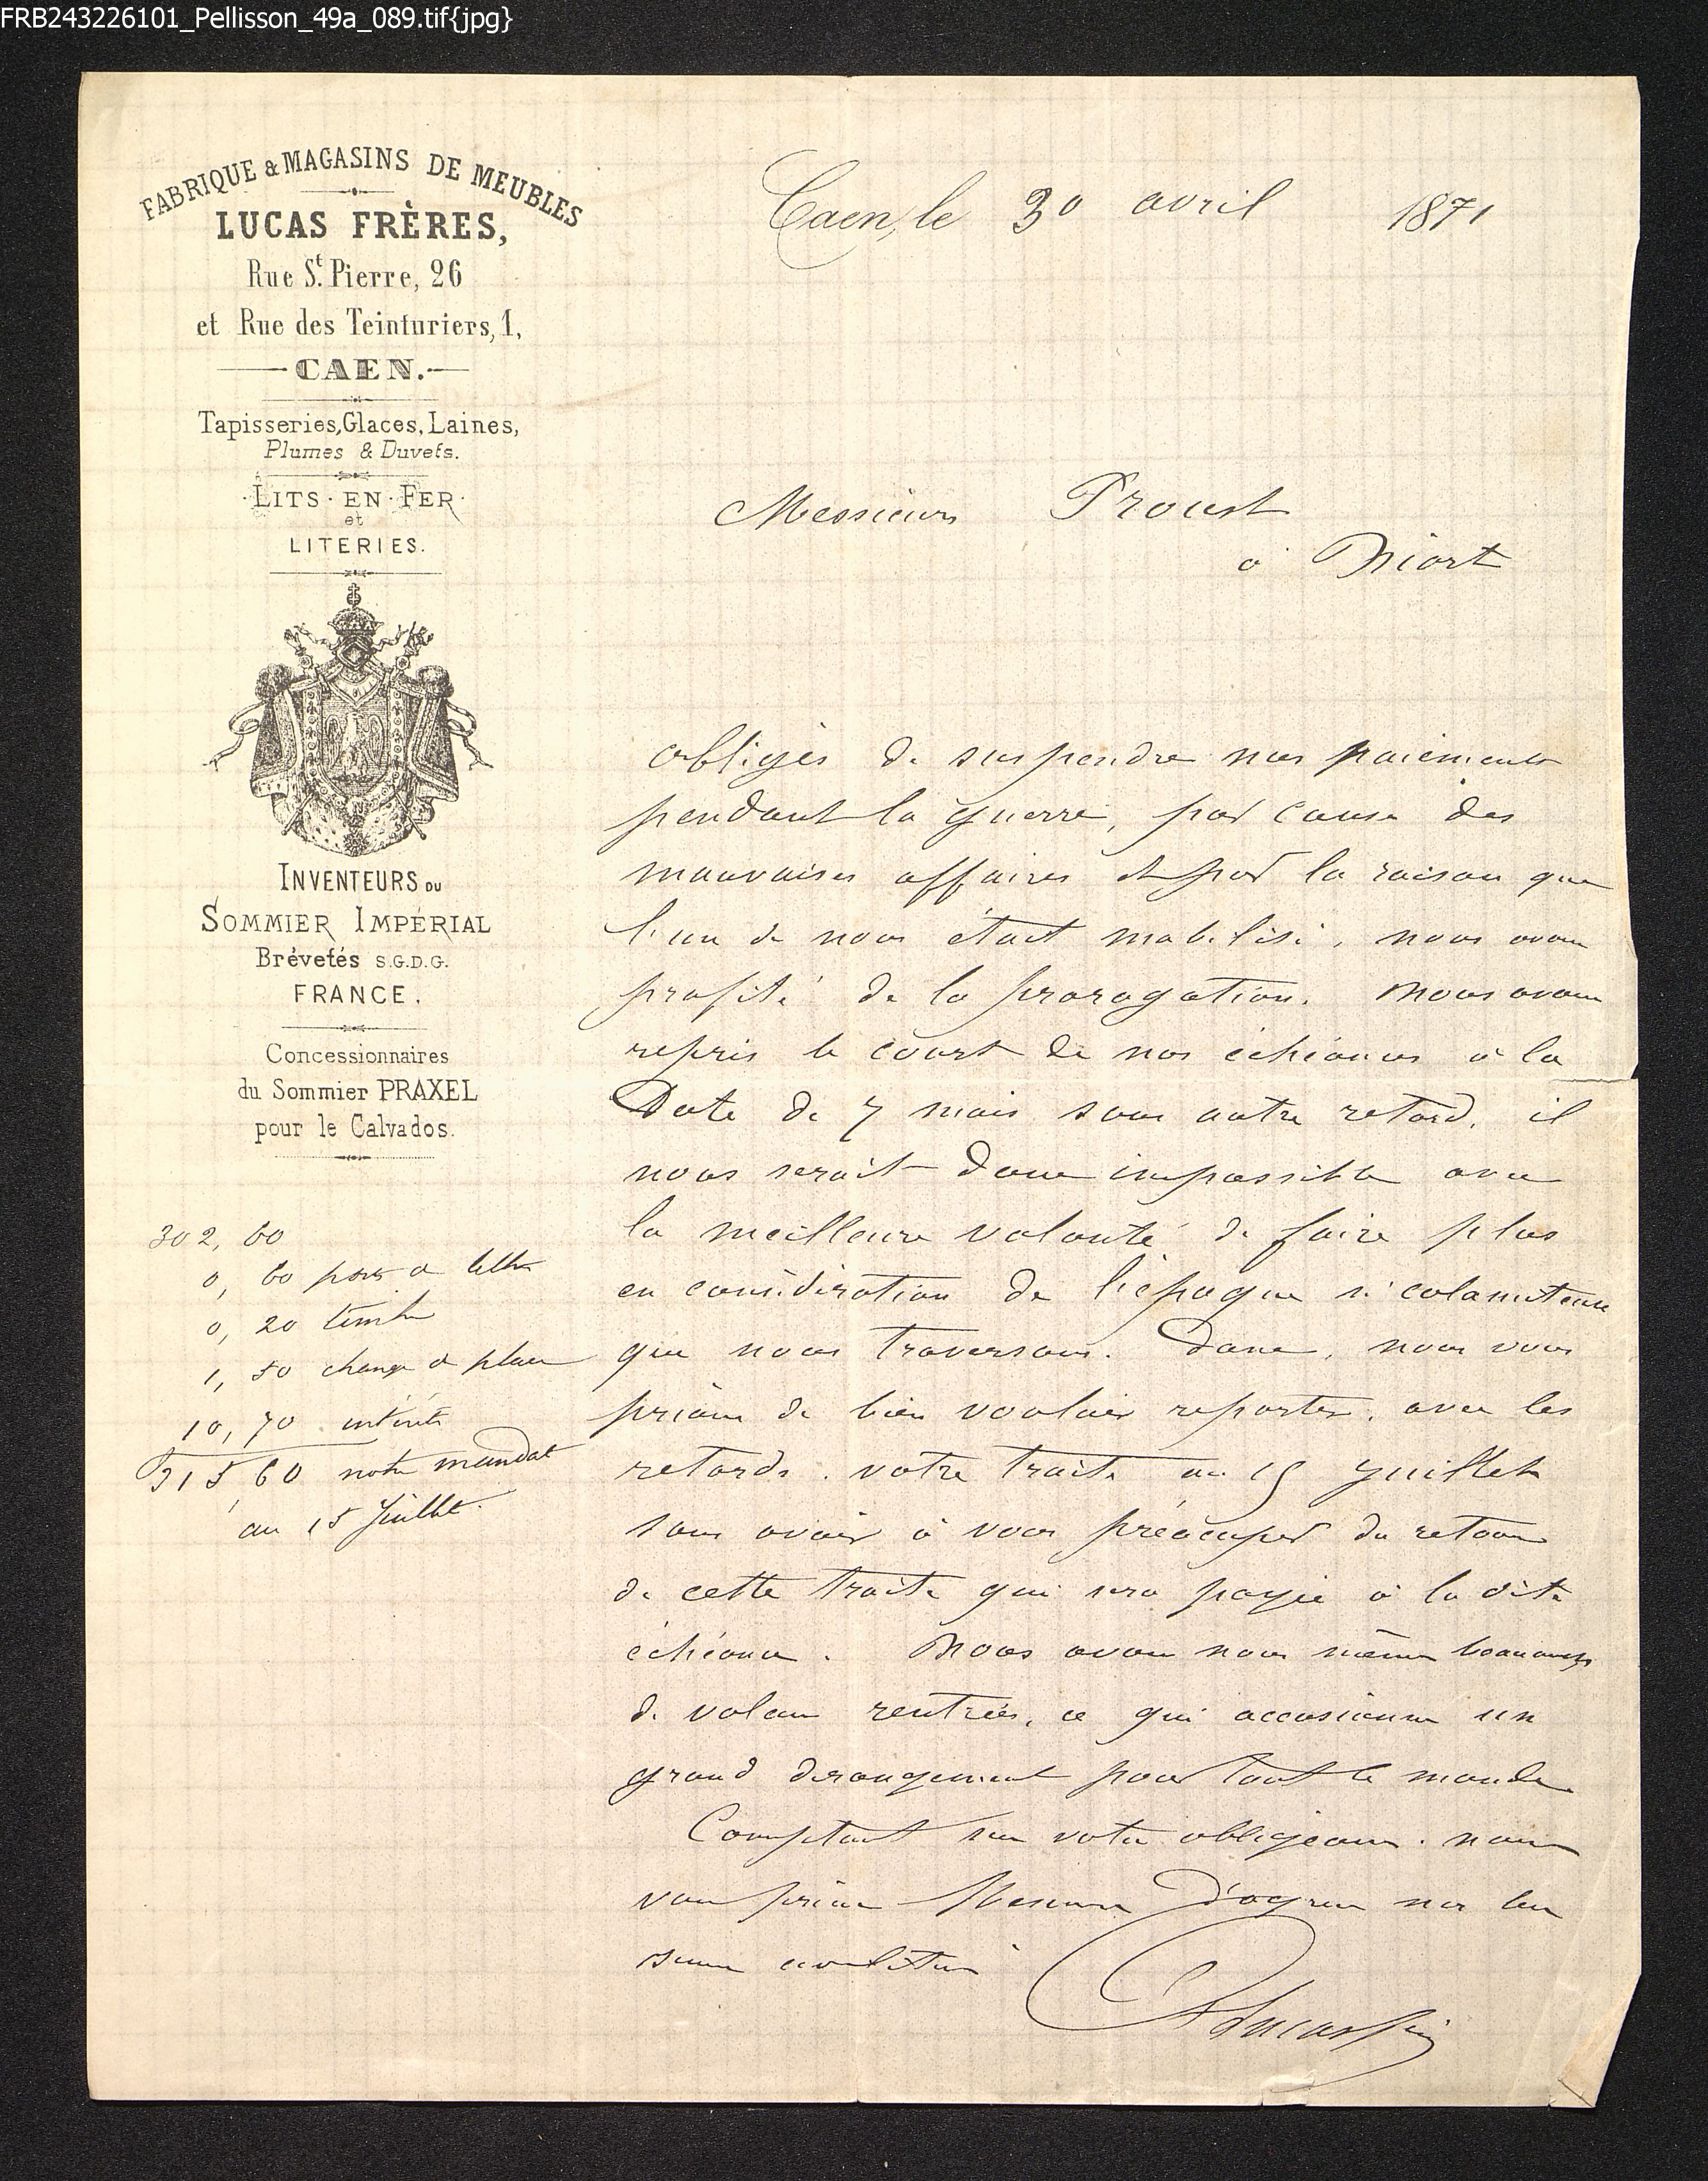 FRB243226101_Pellisson_49a_089.tif{jpg}
FABRIQUE & MAGASINS DE MEUBLES
LUCAS FRÈRES,
Rue St. Pierre, 26
et Rue des Teinturiers, 1,
CAEN.
Tapisseries, Glaces, Laines,
Plumes & Duvets.
LITS · EN · FER
et
LITERIES.
INVENTEURS DU
SOMMIER IMPÉRIAL
Brévetés S.G.D.G.
FRANCE.
Concessionnaires
du Sommier PRAXEL
pour le Calvados.
302, 60
0, 60 port de lettre
0, 20 timbre
1, 50 change de place
10, 70 intérêts
315, 60 notre mandat
au 15 Juillet
Caen, le 30 avril 1871
Messieurs Proust
à Niort
Obligés de suspendre nos paiements
pendant la guerre, par cause des
mauvaises affaires et par la raison que
l'un de nous était mobilisé, nous avons
profité de la prorogation. Nous avons
repris le court de nos échéances à la
Date de 7 mois sans autre retard. il
nous serait donc impossible avec
la meilleure volonté de faire plus
en considération de l'époque si calamiteuse
que nous traversons. Donc, nous vous
prions de bien vouloir reporter, avec les
retards, votre traite au 15 Juillet
sans avoir à vous préocuper du retour
de cette traite qui sera payée à la dite
échéance. Nous avons nous même beaucoup
de valeurs rentrées, ce qui occasionne un
grand derangement pour tout le monde
Comptant sur votre obligeance, nous
vous prions Messieurs d'agréer nos
salutations
Lucas